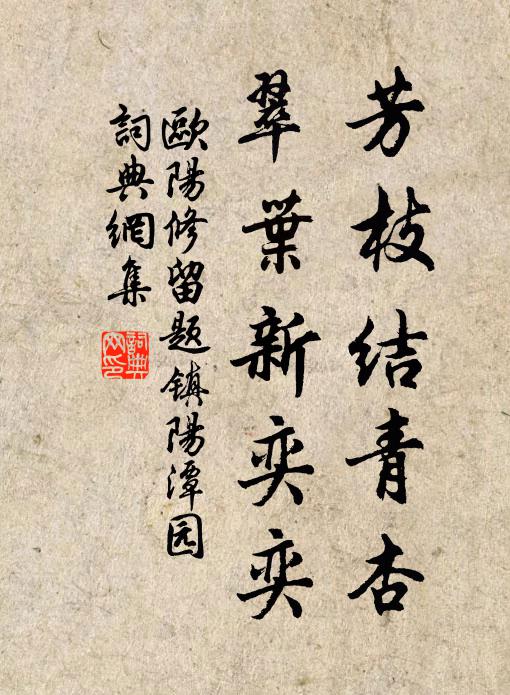 芳枝结青杏
翠葉新奕奕
歐陽修留题镇陽潭园
詞典網集
詞典网印